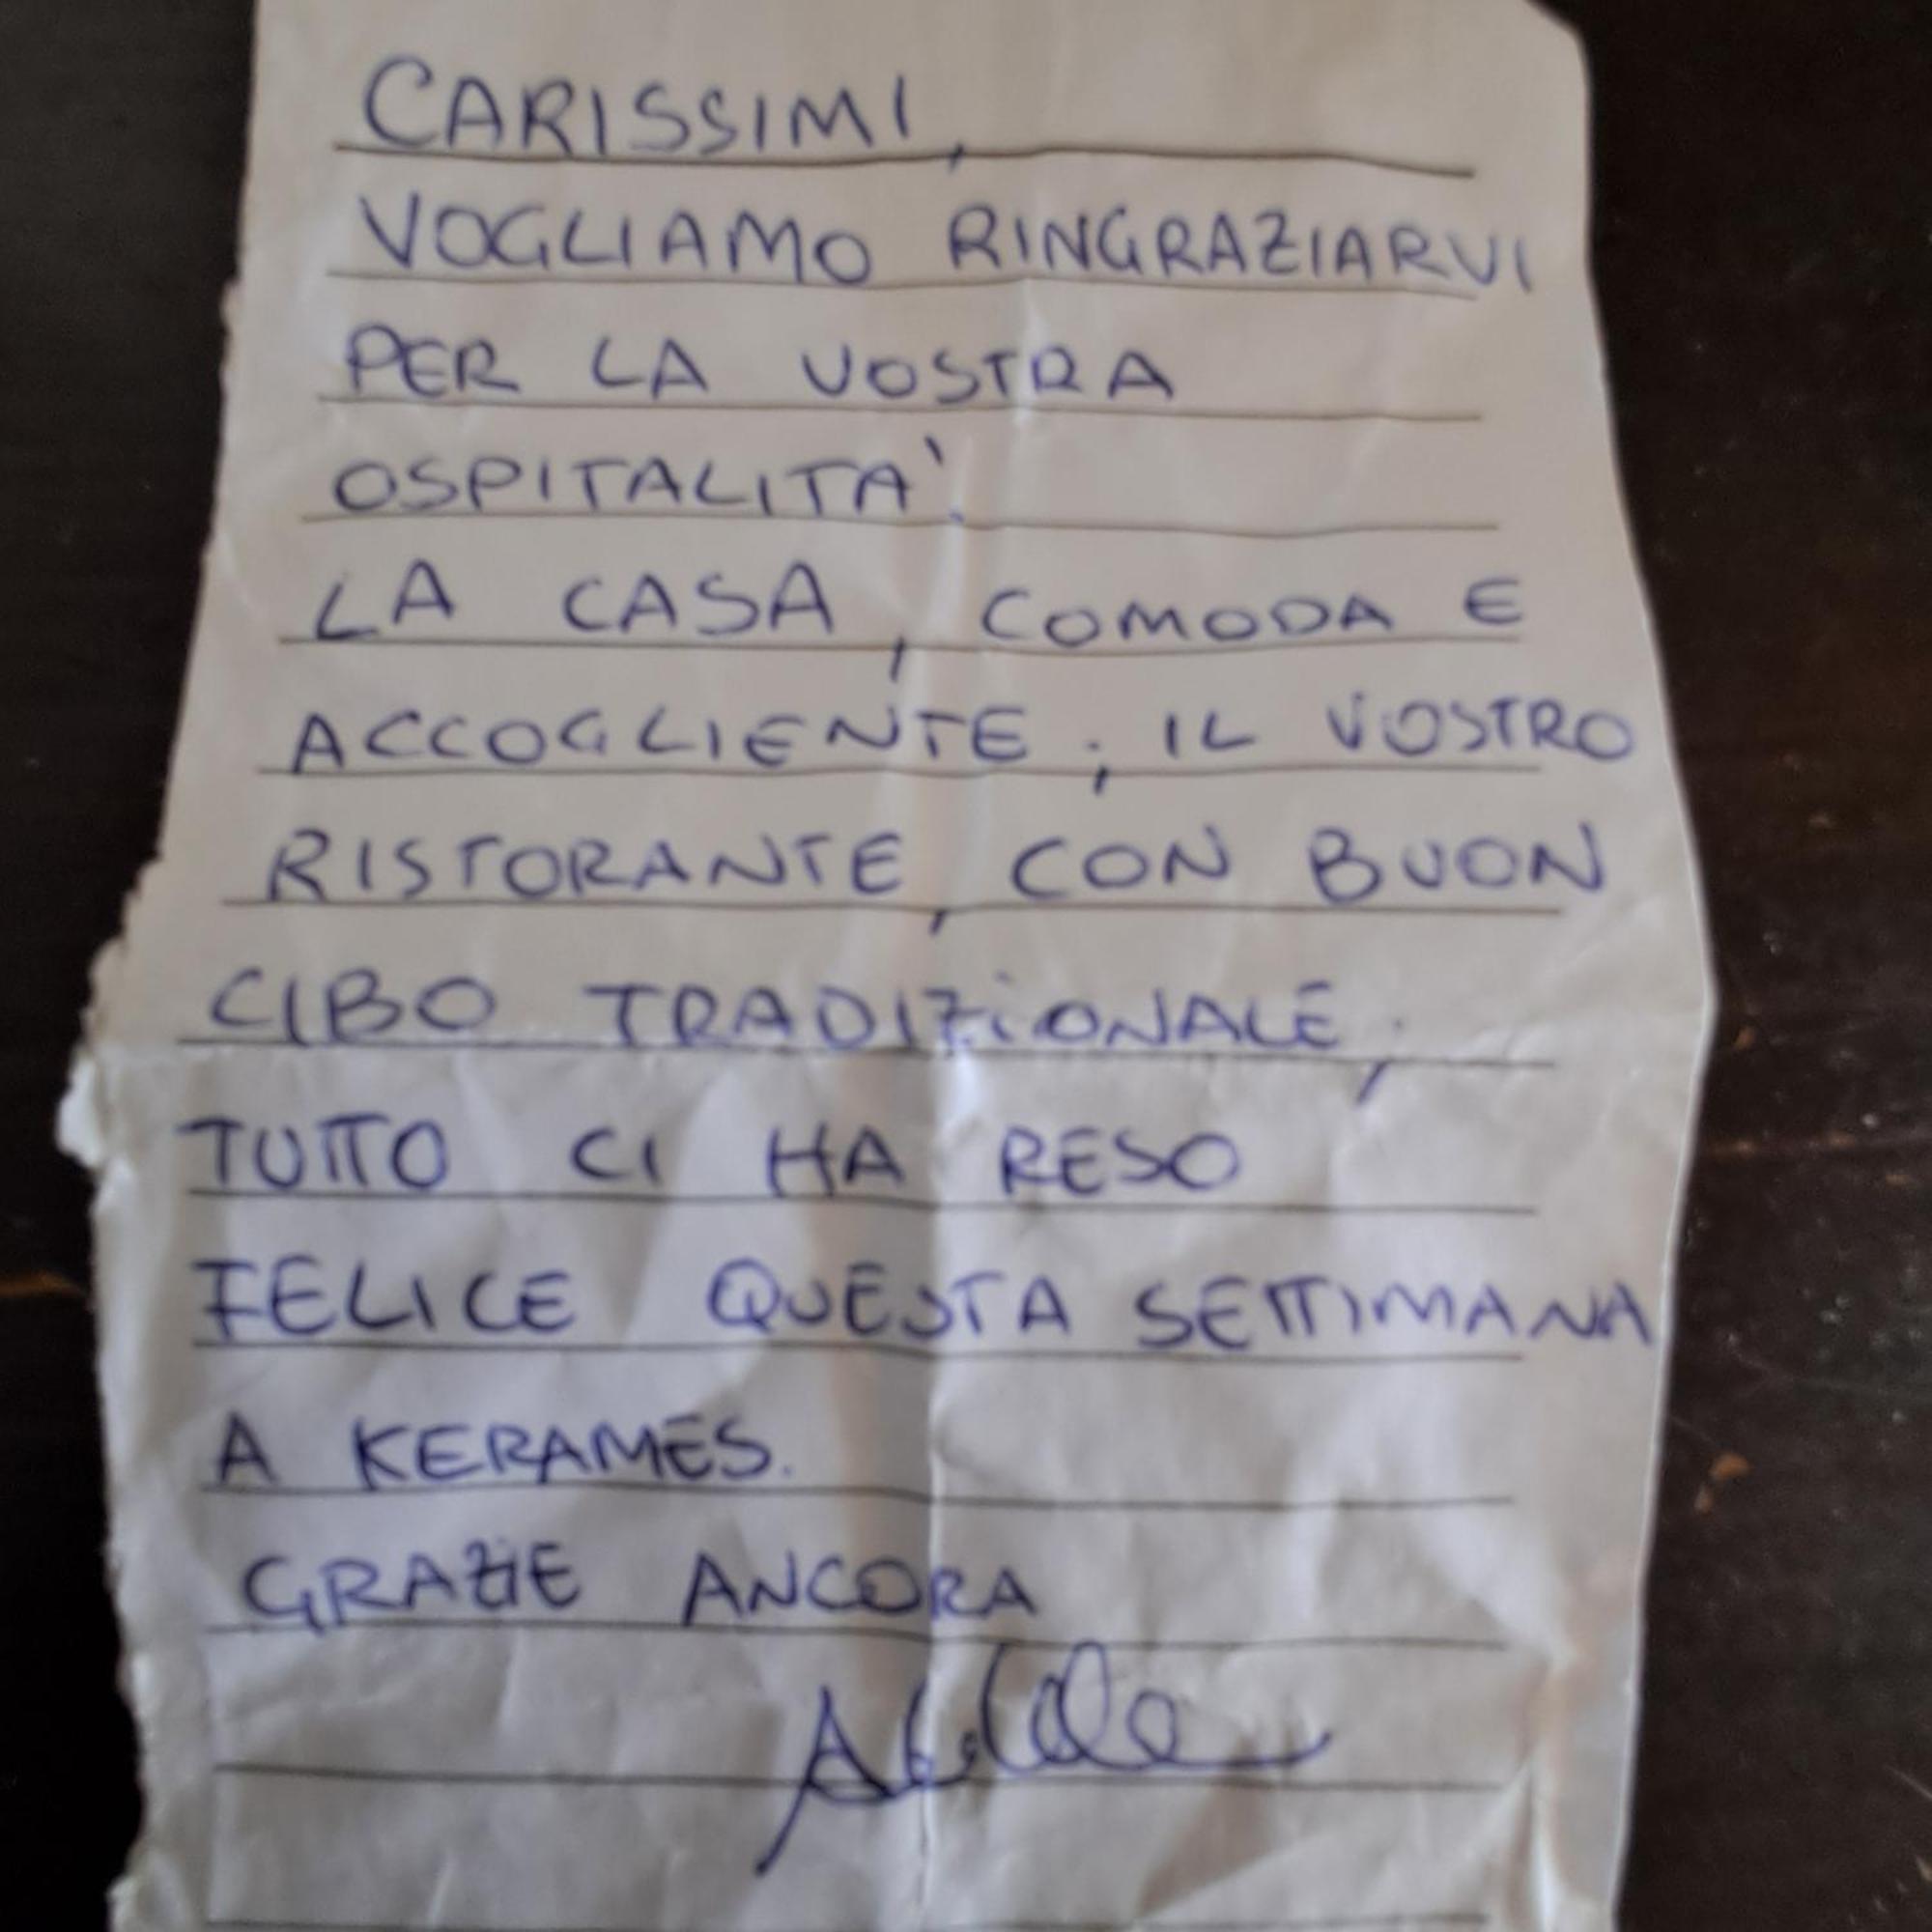 CARISSIMI,
VOGLIAMO RINGRAZIARVI
PER LA VOSTRA
OSPITALITA'.
LA CASA, COMODA E
ACCOGLIENTE; IL VOSTRO
RISTORANTE, CON BUON
CIBO TRADIZIONALE;
TUTTO CI HA RESO
FELICE QUESTA SETTIMANA
A KERAMES.
GRAZIE ANCORA